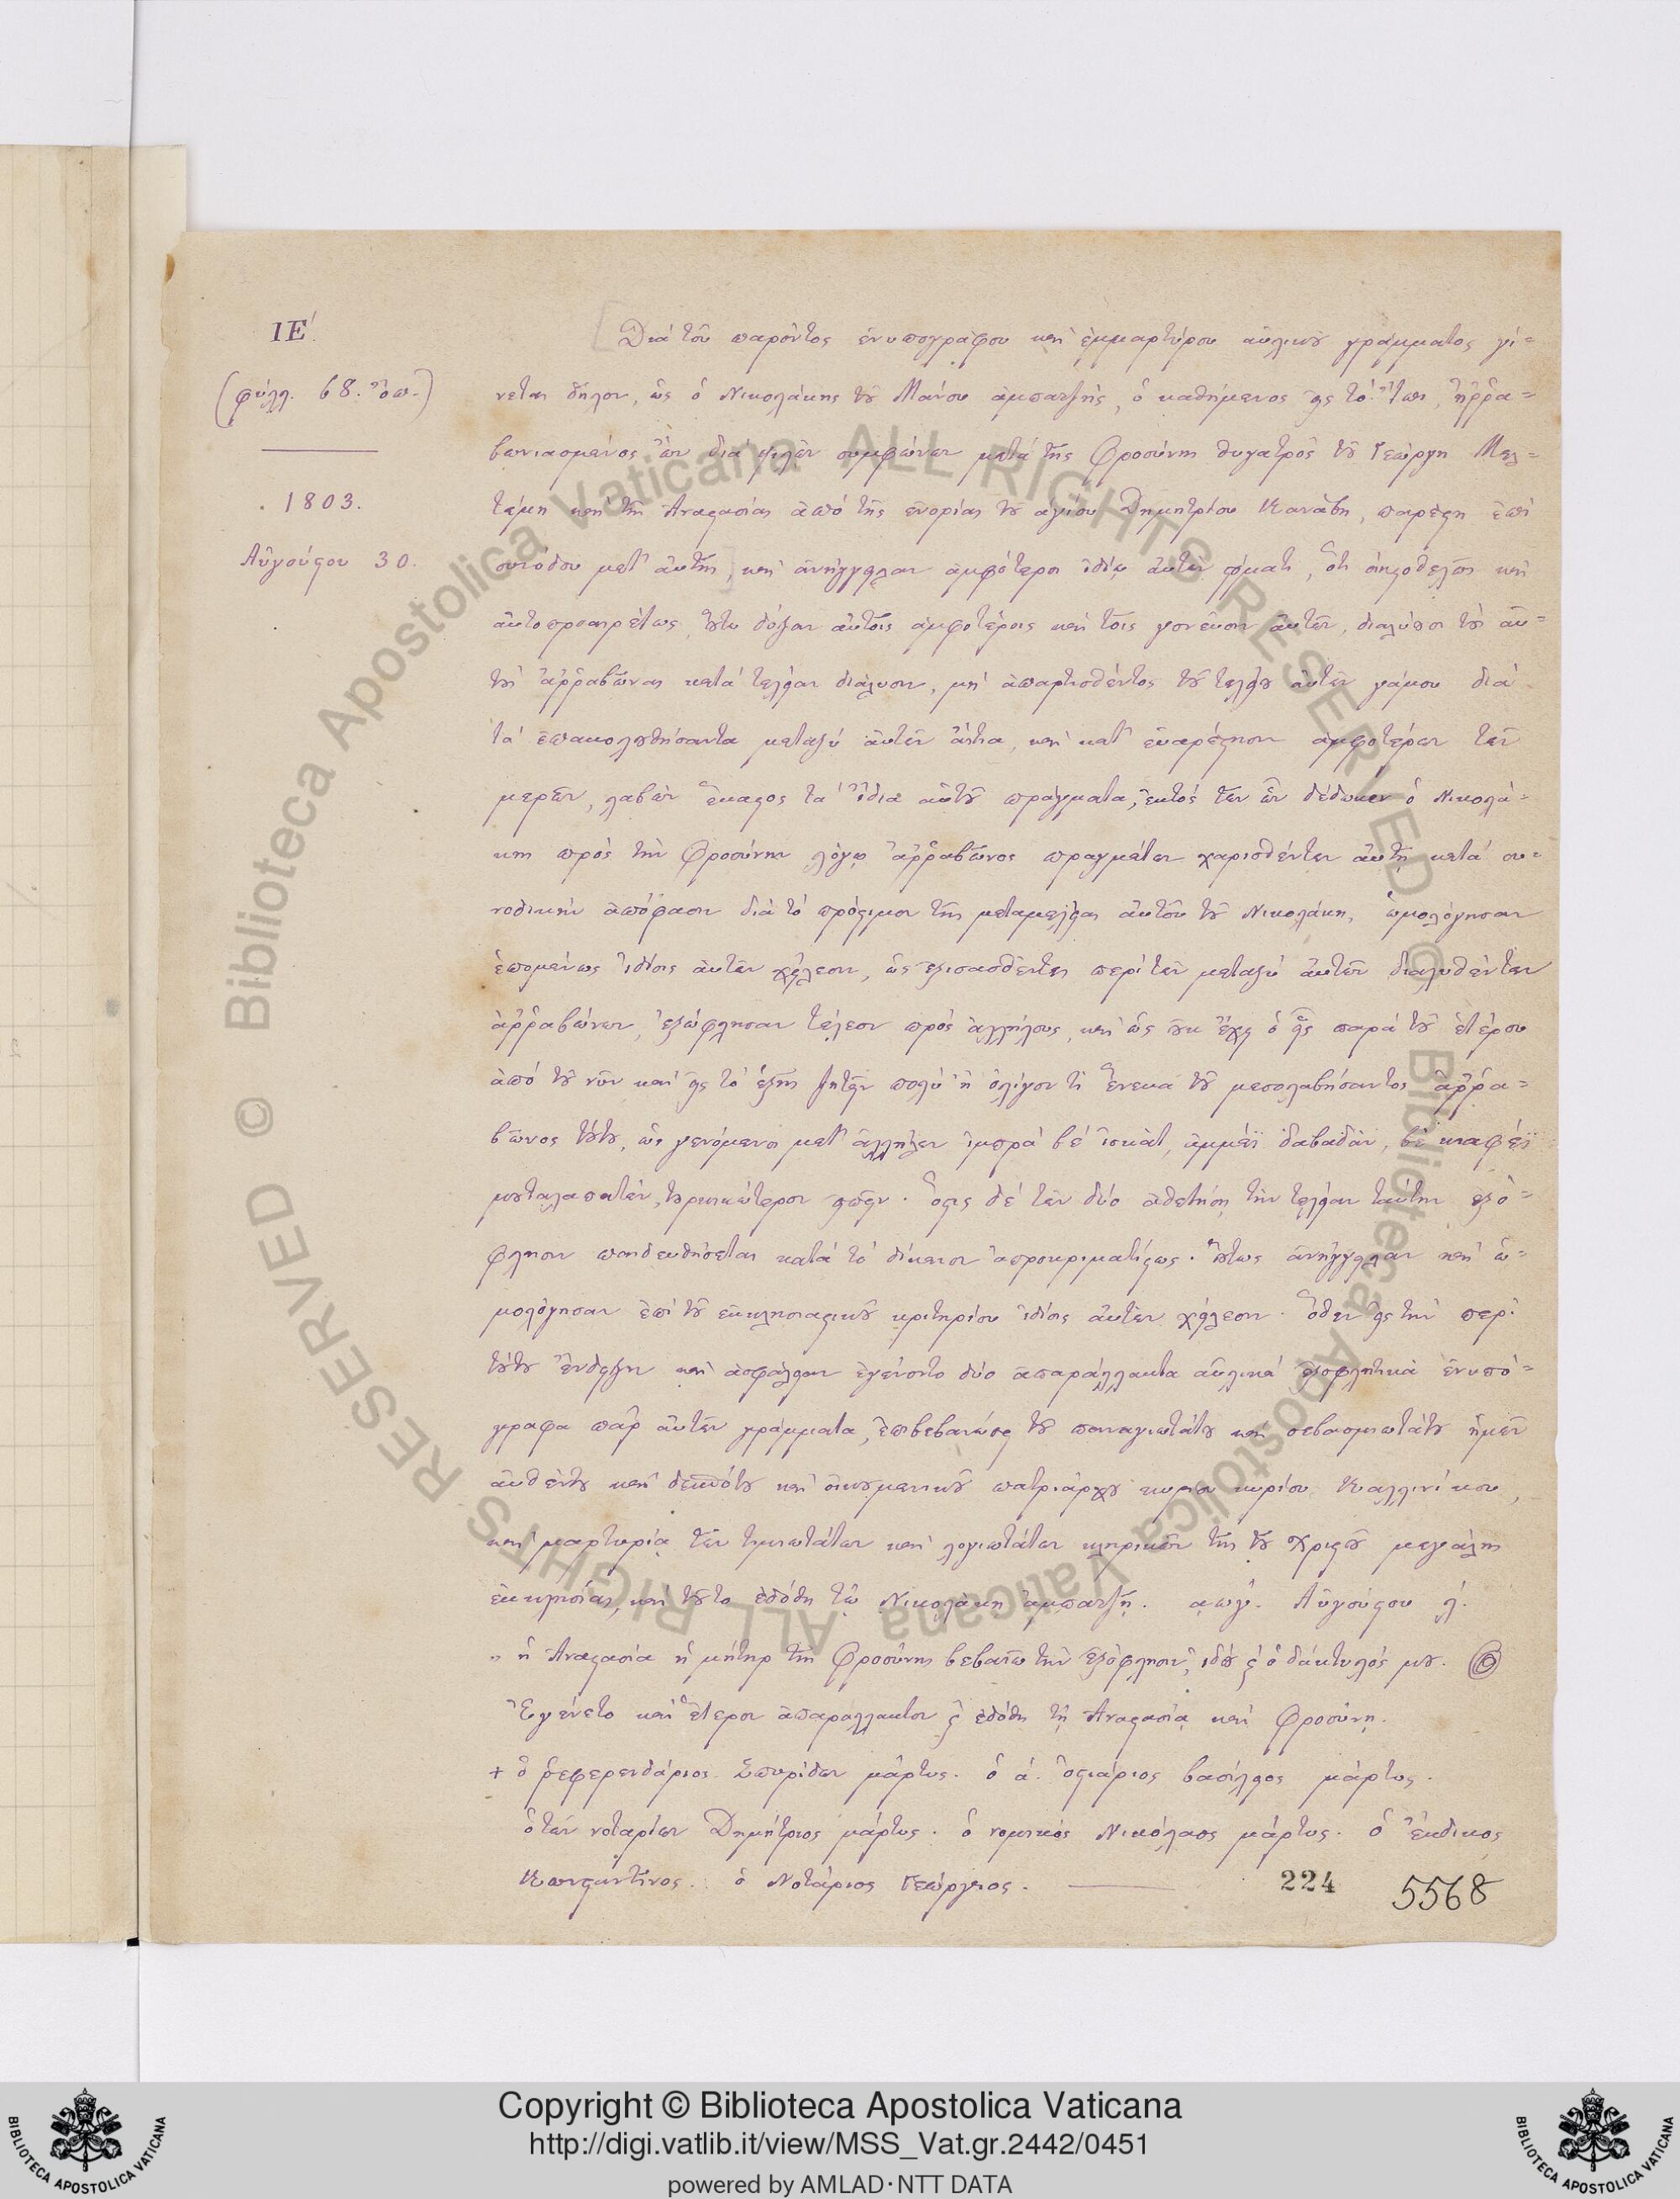 ΙΕ΄.
(φύλλ. 68. ὄπ.)
1803.
Αὐγούστου 30.
Διὰ τοῦ παρόντος ἐνυπογράφου καὶ ἐμμαρτύρου αὐλικοῦ γράμματος γί=
νεται δῆλον, ὡς ὁ Νικολάκης τοῦ Μάνου ἀμπατζῆς, ὁ καθήμενος εἰς τὸ ἤρρα=
βωνιασμένος ὢν διὰ ψιλῶν συμφώνων μετὰ τῆς Φροσύνης θυγατρὸς τοῦ Γεώργη Μελ=
καὶ τῆς Ἀναστασίας ἀπὸ τῆς ἐνορίας τοῦ ἁγίου Δημητρίου Κανάβη, παρέστη ἐπὶ
συνόδου μετ' αὐτῆς, καὶ ἀνήγγειλαν ἀμφότεροι ἰδίῳ αὐτῶν στόματι, ὅτι οἰκειοθελῶς καὶ
αὐτοπροαιρέτως, οὕτω δόξαν αὐτοῖς ἀμφοτέροις καὶ τοῖς γονεῦσιν αὐτῶν, διαλύουσι τοὺς αὐ=
τοὺς ἀῤῥαβῶνας κατὰ τελείαν διάλυσιν, μὴ ἀπαρτισθέντος τοῦ τελείου αὐτῶν γάμου διὰ
τὰ ἐπακολουθήσαντα μεταξὺ αὐτῶν αἴτια, καὶ κατ' εὐαρέστησιν ἀμφοτέρων τῶν
μερῶν, λαβὼν ἕκαστος τὰ ἴδια αὐτοῦ πράγματα, ἐκτὸς τῶν ὧν δέδωκεν ὁ Νικολά=
κης πρὸς τὴν Φροσύνην λόγῳ ἀῤῥαβῶνος πραγμάτων χαρισθέντων αὐτῇ κατὰ συ=
νοδικὴν ἀπόφασιν διὰ τὸ πρόστιμον τῆς μεταμελείας αὐτοῦ τοῦ Νικολάκη, ὡμολόγησαν
ἑπομένως ἰδίοις αὐτῶν χείλεσιν, ὡς ἐξισασθέντες περὶ τῶν μεταξὺ αὐτῶν διαλυθέντων
ἀῤῥαβώνων, ἐξώφλησαν τέλεον πρὸς ἀλλήλους, καὶ ὡς οὐκ ἔχει ὁ εἷς παρὰ τοῦ ἑτέρου
ἀπὸ τοῦ νῦν καὶ εἰς τὸ ἑξῆς ζητεῖν πολὺ ἢ ὀλίγον τι ἕνεκα τοῦ μεσολαβήσαντος ἀῤῥα=
βῶνος τούτου, ὡς γενόμενοι μετ' ἀλλήλων ἰμπρὰ βὲ ἰσκὰτ, ἀμμέϊ δαβαδὰν, βὲ κιαφέϊ
μουταλαπατὲν, τουρκικώτερον εἰπεῖν. ὅστις δὲ τῶν δύο ἀθετήσῃ τὴν τελείαν ταύτην ἐξό=
φλησιν παιδευθήσεται κατὰ τὸ δίκαιον ἀπροκριματίστως. οὕτως ἀνήγγειλαν καὶ ὡ=
μολόγησαν ἐπὶ τοῦ ἐκκλησιαστικοῦ κριτηρίου ἰδίοις αὐτῶν χείλεσιν. ὅθεν εἰς τὴν περὶ
τούτου ἔνδειξιν καὶ ἀσφάλειαν ἐγένοντο δύο ἀπαράλλακτα αὐλικὰ ἐξοφλητικὰ ἐνυπό=
γραφα παρ' αὐτῶν γράμματα, ἐπιβεβαιώσει τοῦ παναγιωτάτου καὶ σεβασμιωτάτου ἡμῶν
αὐθέντου καὶ δεσπότου καὶ οἰκουμενικοῦ πατριάρχου κυρίου κυρίου Καλλινίκου,
καὶ μαρτυρίᾳ τῶν τιμιωτάτων καὶ λογιωτάτων κληρικῶν τῆς τοῦ Χριστοῦ μεγάλης
ἐκκλησίας, καὶ τοῦτο ἐδόθη τῷ Νικολάκῃ ἀμπατζῇ. ͵αωγ΄. Αὐγούστου λ΄.
" ἡ Ἀναστασία ἡ μήτηρ τῆς Φροσύνης βεβαιῶ τὴν ἐξόφλησιν, ἰδοὺ ϛ ὁ δάκτυλός μου.
Ἐγένετο καὶ ἕτερον ἀπαράλλακτον ϛ ἐδόθη τῇ Ἀναστασίᾳ καὶ Φροσύνῃ.
+ ὁ ῥεφερενδάριος Σπυρίδων μάρτυς. ὁ ἀ. ὀστιάριος Βασίλειος μάρτυς.
ὁ τῶν νοταρίων Δημήτριος μάρτυς. ὁ νομικὸς Νικόλαος μάρτυς. ὁ ἔκδικος
Κωνσταντῖνος. ὁ Νοτάριος Γεώργιος.
224 5568
© Biblioteca Apostolica Vaticana ALL RIGHTS RESERVED © Biblioteca Apostolica Vaticana ALL RIGHTS RESERVED
Copyright © Biblioteca Apostolica Vaticana
http://digi.vatlib.it/view/MSS_Vat.gr.2442/0451
powered by AMLAD·NTT DATA
BIBLIOTECA APOSTOLICA VATICANA
BIBLIOTECA APOSTOLICA VATICANA